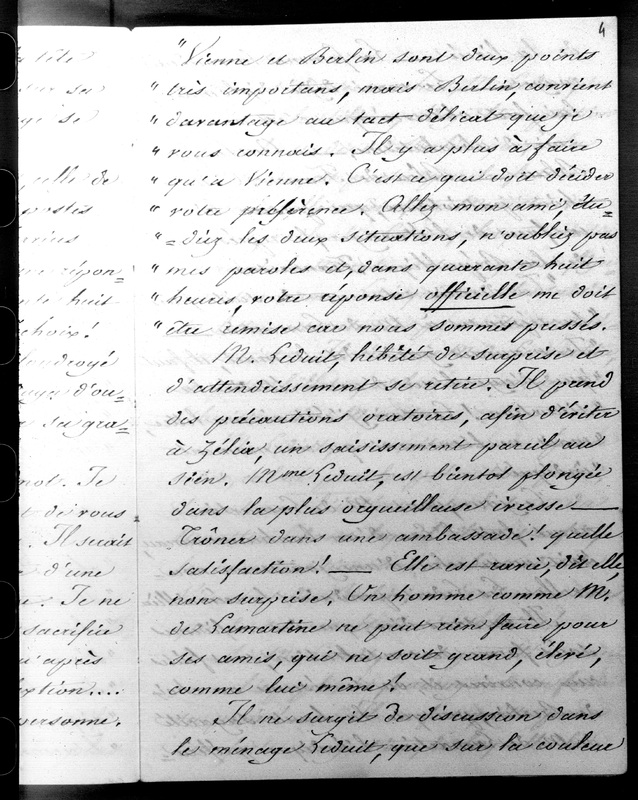 4
"Vienne et Berlin sont deux points
" très importans, mais Berlin convient
" davantage au tact délicat que je
" vous connais. Il y a plus à faire
" qu'a Vienne. C'est ce qui doit décider
" votre préférence. Allez mon ami, étu=
" =diez les deux situations, n'oubliez pas
" mes paroles et, dans quarante huit
" heures, votre réponse officielle me doit
" être remise car nous sommes pressés.
M. Leduit, hébêté de surprise et
d'attendrissement se retire. Il prend
des précautions oratoires, afin d'éviter
à Zélia, un saisissement pareil au
sien. Mme Leduit, est bientot plongée
dans la plus orgueilleuse ivresse —
Trôner dans une ambassade! quelle
satisfaction! — Elle est ravie, dit elle,
non surprise. Un homme comme M.
de Lamartine ne peut rien faire pour
ses amis, qui ne soit grand, élevé,
comme lui même!
Il ne surgit de discussion dans
le ménage Leduit, que sur la couleur
tête
sur sa
se
elle de
postes
répon=
huit
choix!
d'ou=
sa gra=
mot. Je
de vous
. Il serait
d'une
. Je ne
sacrifice
u'après
ption....
personne.